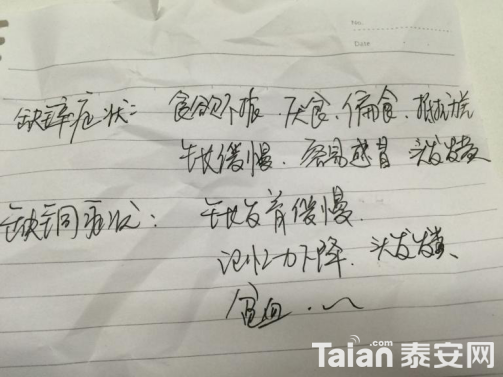 No.
Date
缺锌症状: 食欲不振、厌食、偏食、抵抗
生长缓慢、容易感冒 头发发黄
缺铜症状: 生长发育缓慢、
记忆力下降、头发发黄、
贫血.
Taian 泰安网